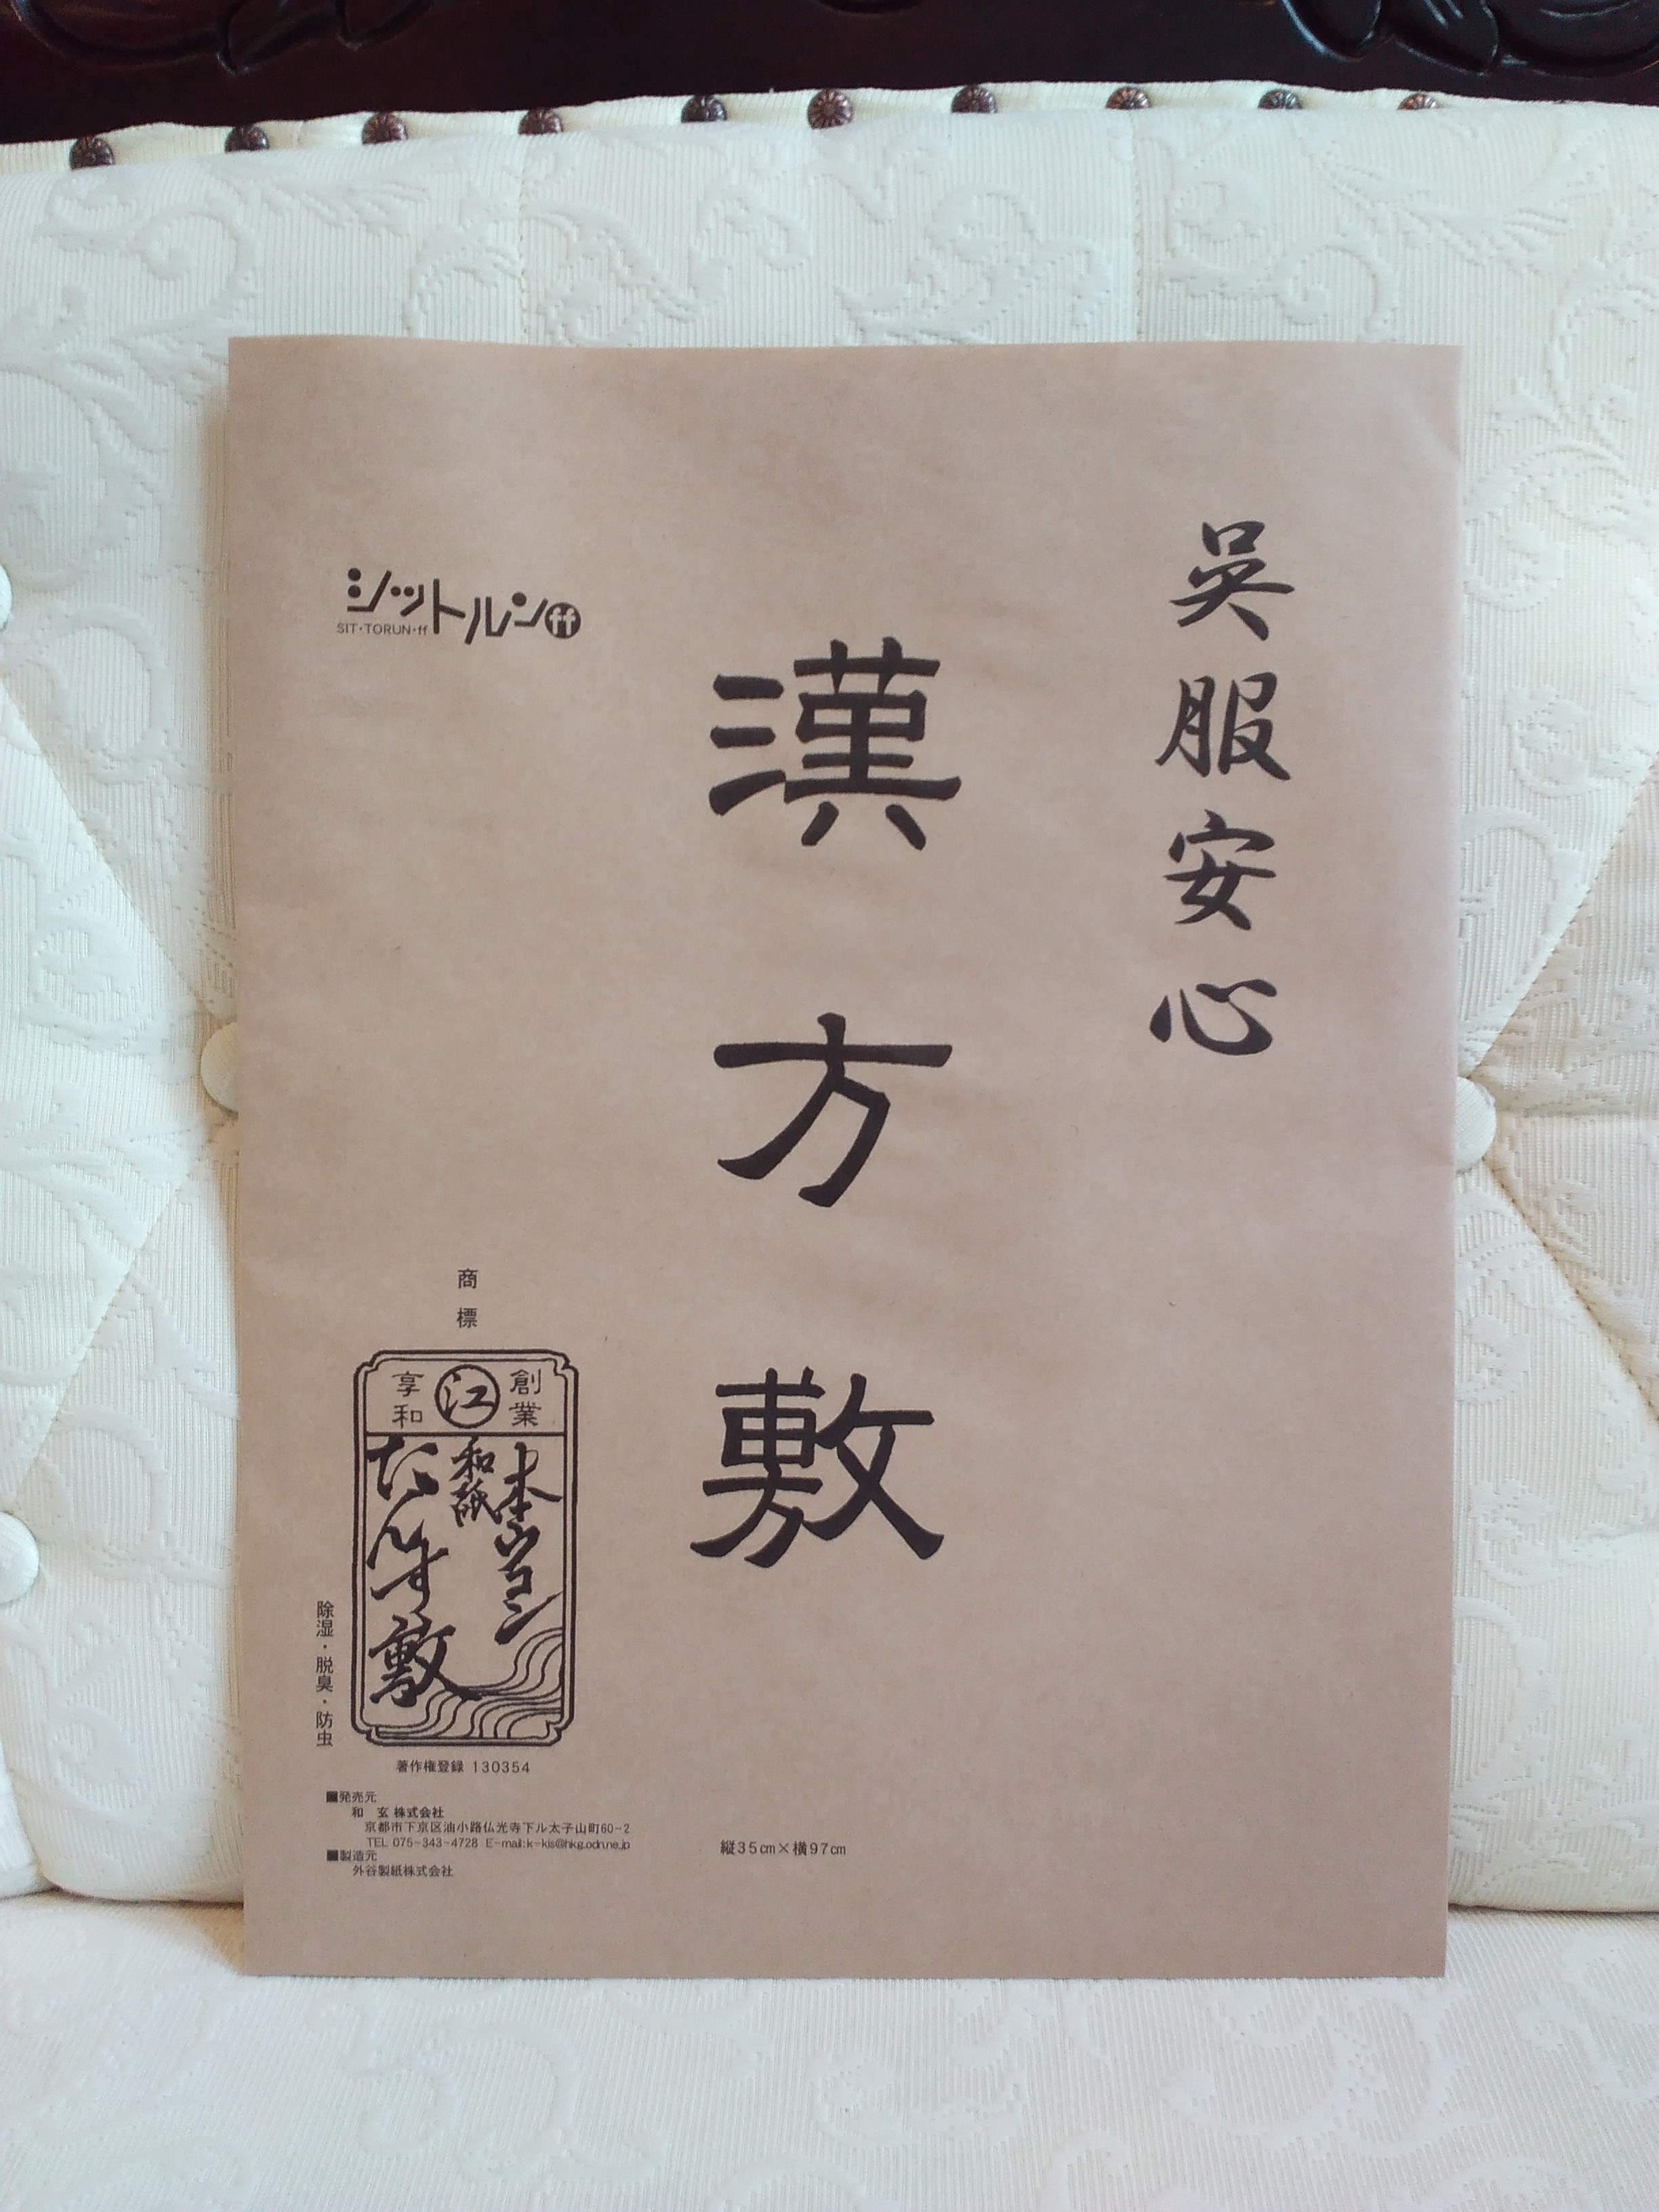 呉服安心
漢方敷
シットルンff
SIT・TORUN・ff
商標
創業
江
享和
本ウコン
和紙
たんす敷
除湿・脱臭・防虫
著作権登録 130354
■発売元
和 玄 株式会社
京都市下京区油小路仏光寺下ル太子山町60-2
TEL 075-343-4728 E-mail:k-kis@hkg.odn.ne.jp
■製造元
外谷製紙株式会社
縦35cm×横97cm